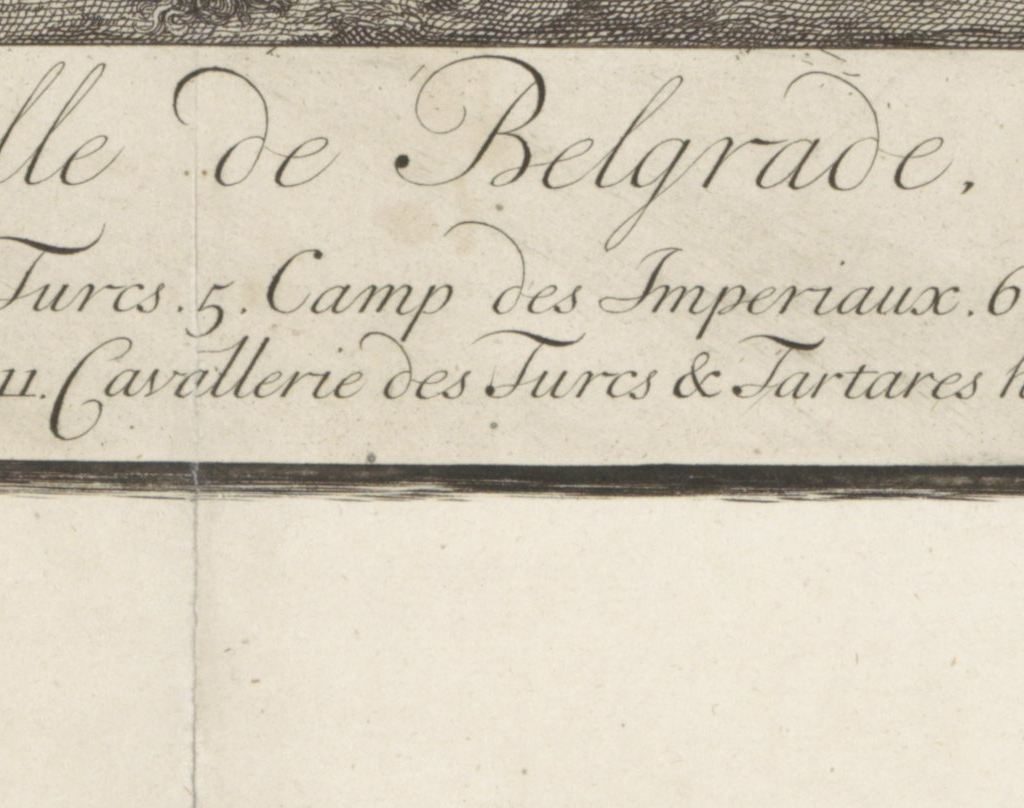 lle de Belgrade,
Turcs. 5. Camp des Imperiaux. 6
11. Cavallerie des Turcs & Tartares h